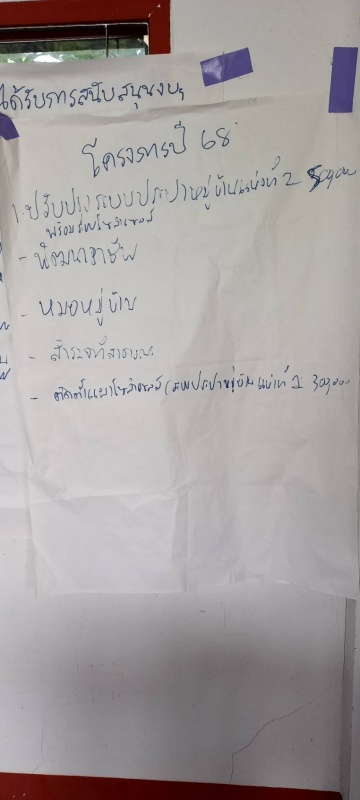 ได้รับการสนับสนุนงบ
โครงการปี 68
1. ปรับปรุงระบบประปาหมู่บ้านแห่งที่ 2 500,000
พร้อมระบบโซล่าเซลล์
- พัฒนาอาชีพ
- หมอหมู่บ้าน
- สำรวจที่สาธารณะ
- ติดตั้งแผงโซล่าเซลล์ (ระบบประปาหมู่บ้าน แห่งที่ 1 300,000